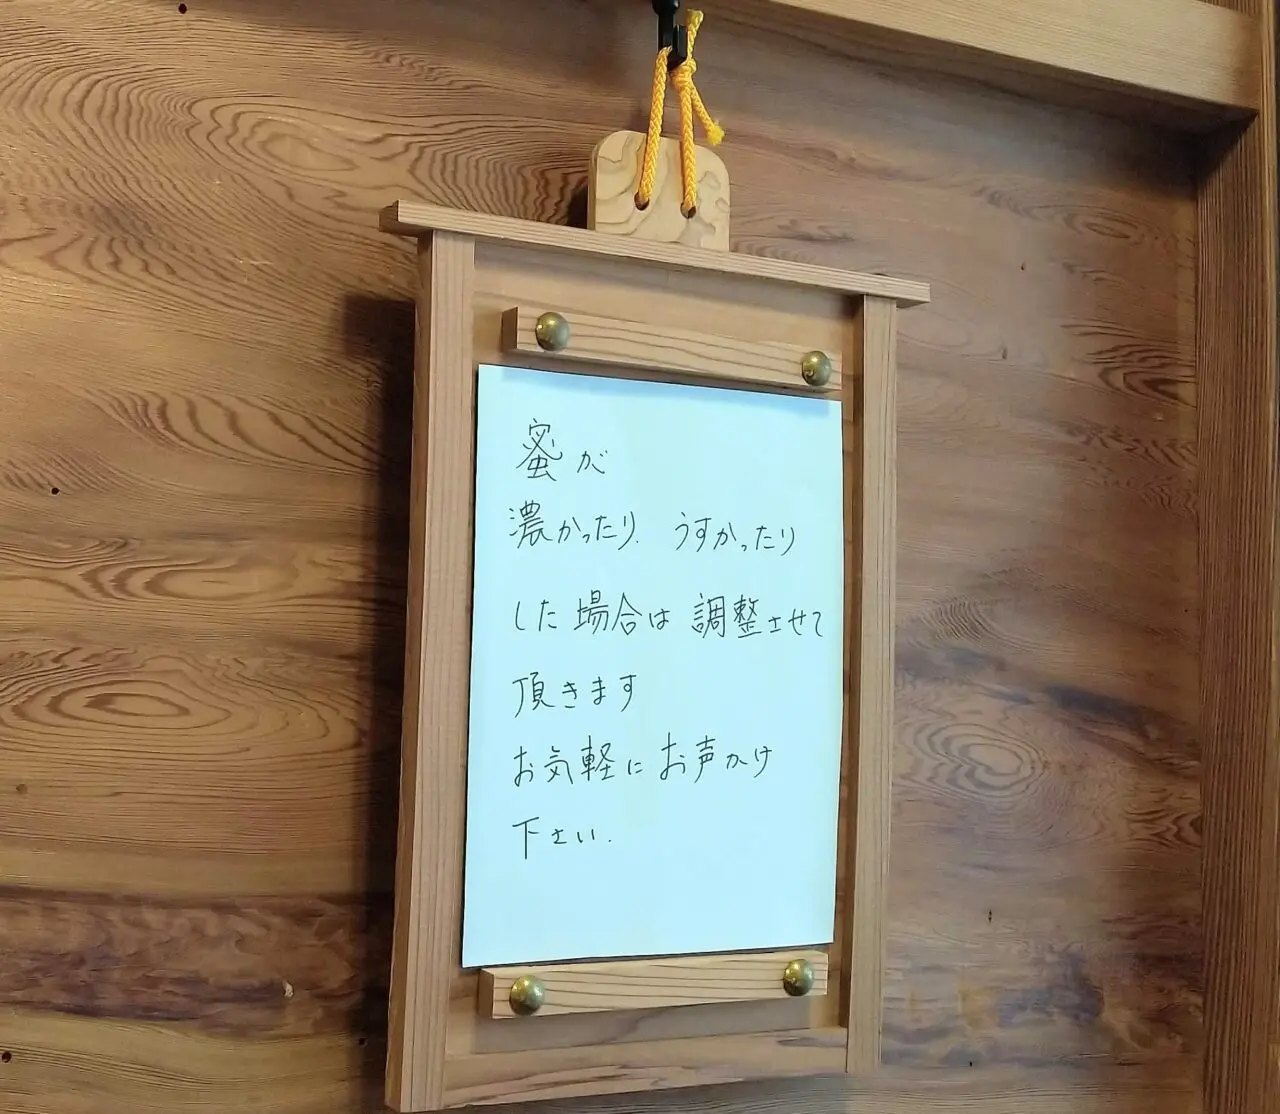 蜜が
濃かったり、うすかったり
した場合は調整させて
頂きます
お気軽にお声かけ
下さい.